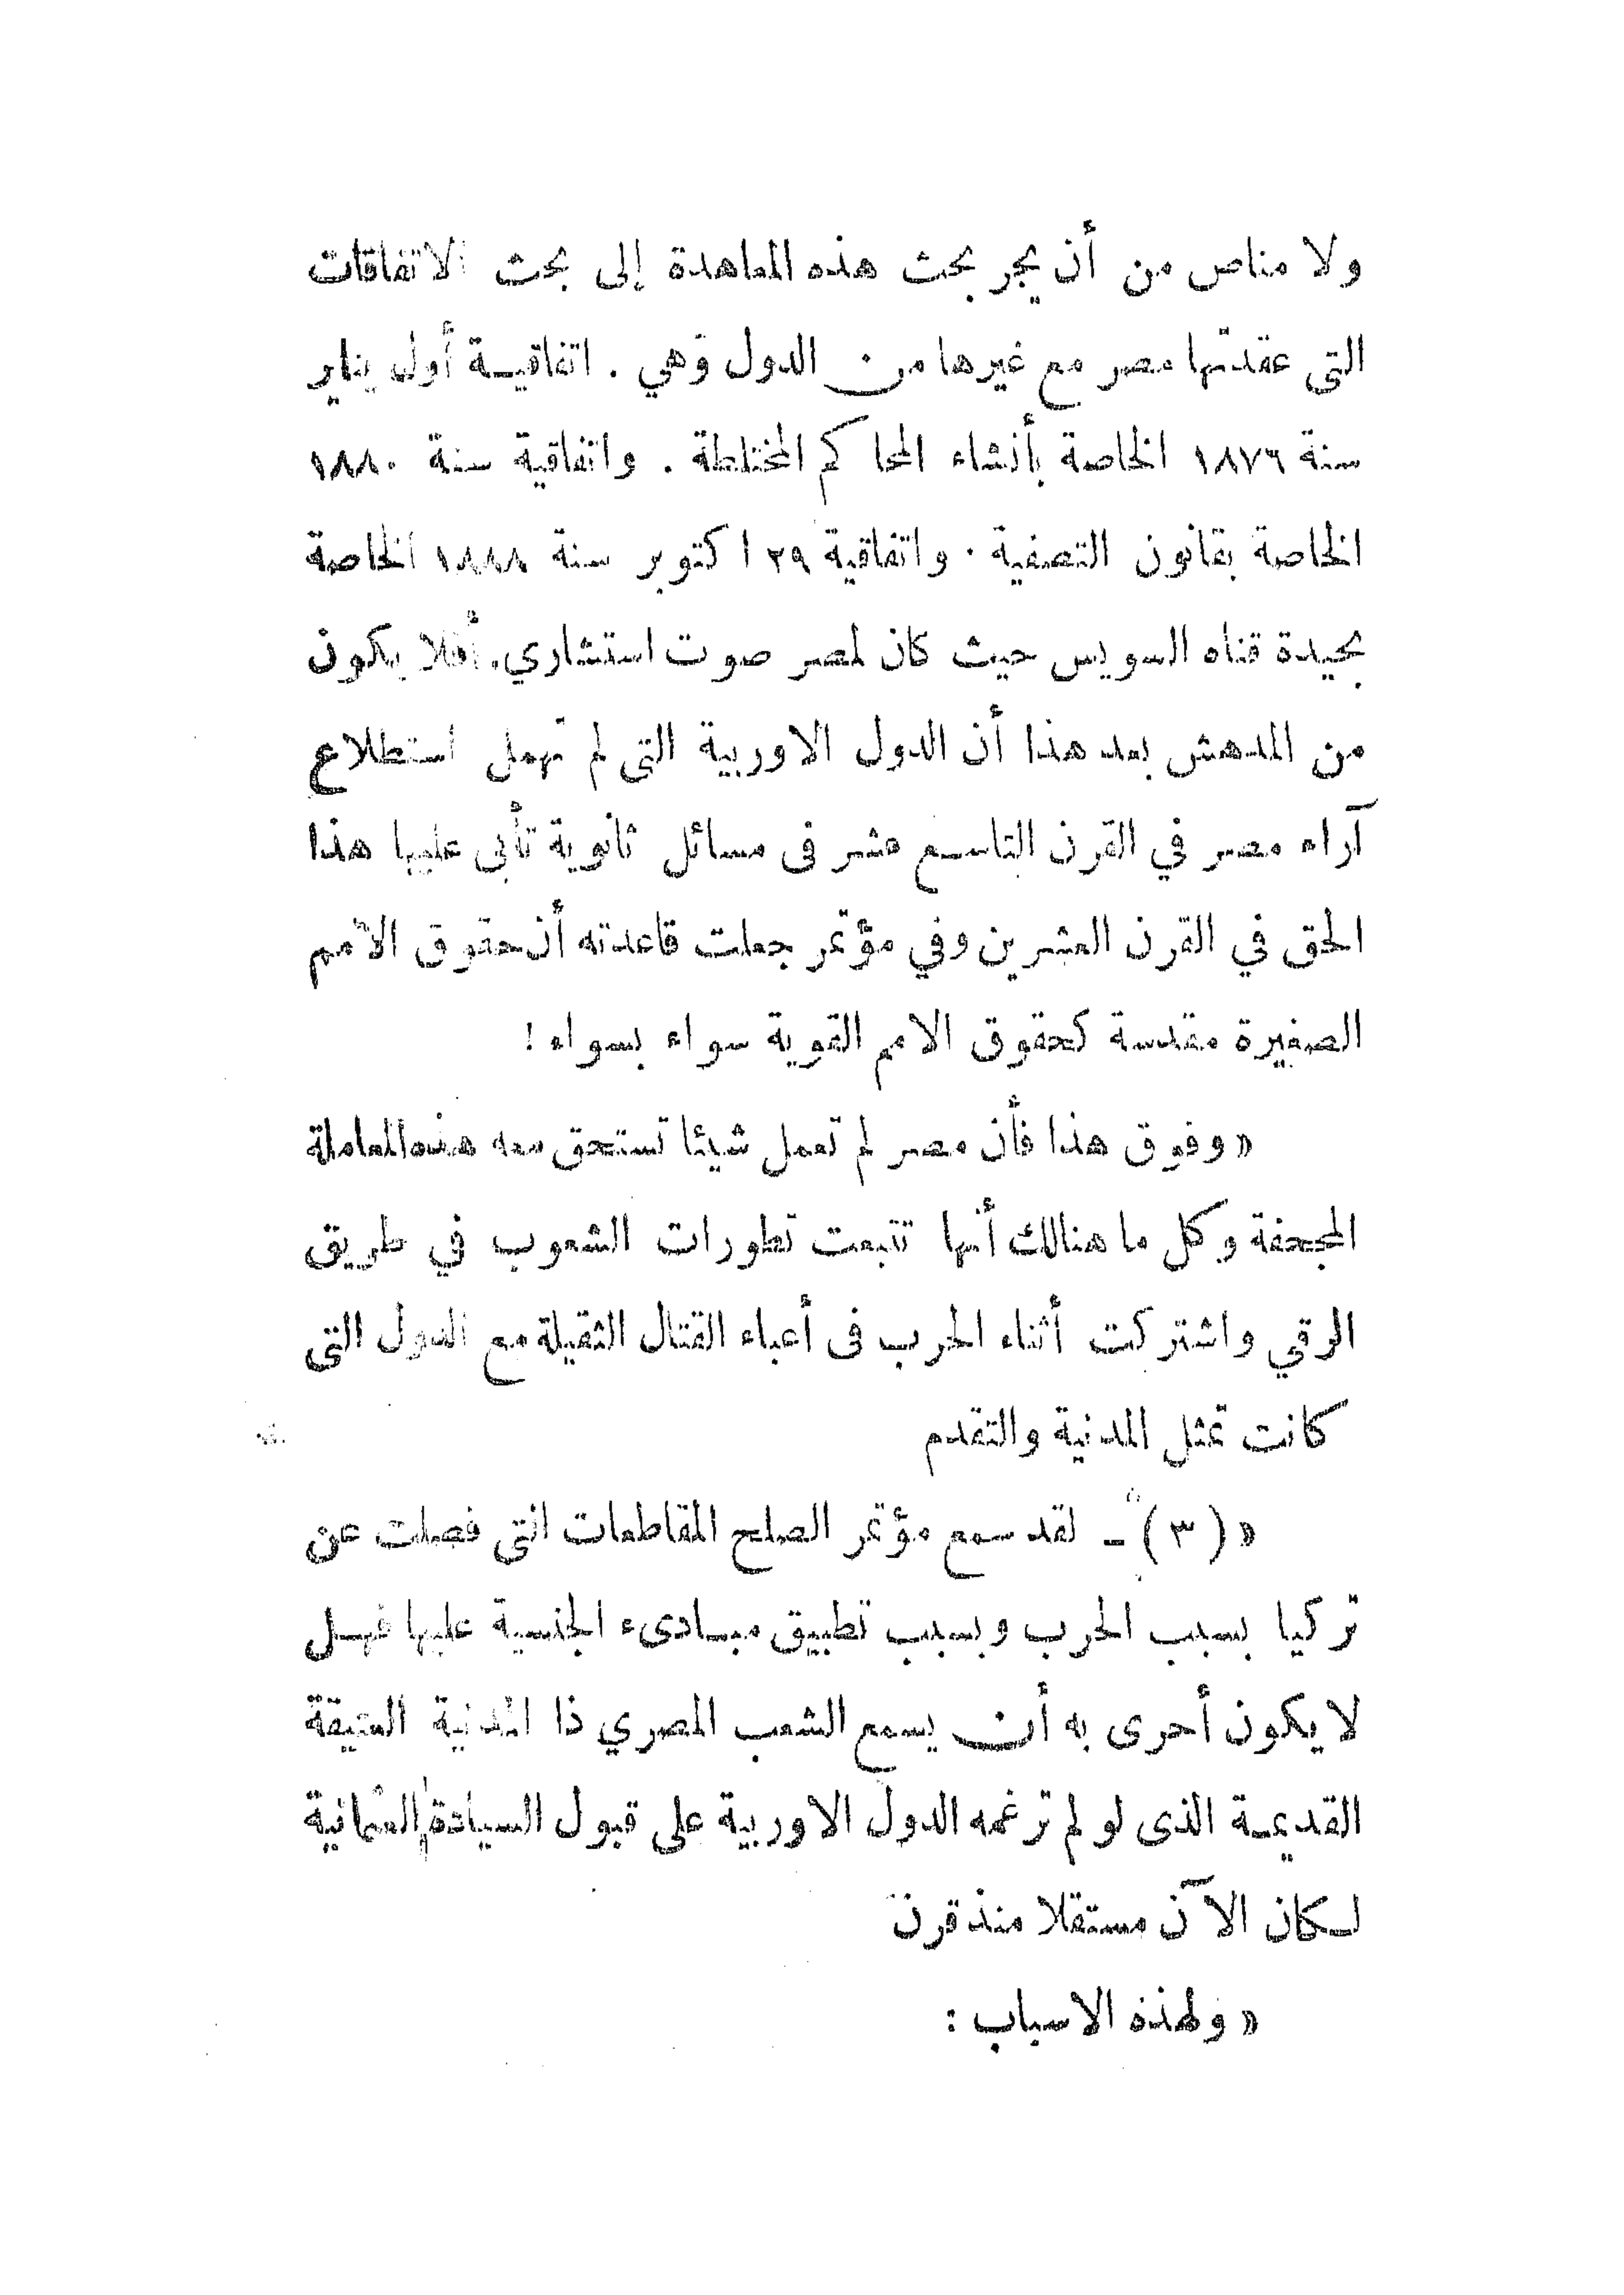 ولا مناص من أن يجر بحث هذه المعاهدة إلى بحث الاتفاقات
التى عقدتها مصر مع غيرها من الدول وهي . اتفاقية أول يناير
سنة ١٨٧٦ الخاصة بأنشاء المحاكم المختلطة . واتفاقية سنة ١٨٨٠
الخاصة بقانون التصفية . واتفاقية ٢٩ اكتوبر سنة ١٨٨٨ الخاصة
بحيدة قناه السويس حيث كان لمصر صوت استشاري. أفلا يكون
من المدهش بعد هذا أن الدول الاوربية التى لم تهمل استطلاع
آراء مصر في القرن التاسع عشر فى مسائل ثانوية تأبى عليها هذا
الحق في القرن العشرين وفي مؤتمر جعلت قاعدته أن حقوق الأمم
الصغيرة مقدسة كحقوق الامم القوية سواء بسواء !
« وفوق هذا فأن مصر لم تعمل شيئا تستحق معه هذه المعاملة
المجحفة وكل ما هنالك أنها تتبعت تطورات الشعوب في طريق
الرقي واشتركت أثناء الحرب فى أعباء القتال الثقيلة مع الدول التى
كانت تمثل المدنية والتقدم
« (٣) ـ لقد سمع مؤتمر الصلح المقاطعات التى فصلت عن
تركيا بسبب الحرب وبسبب تطبيق مبادىء الجنسية عليها فهل
لا يكون أحرى به أن يسمع الشعب المصري ذا المدنية العتيقة
القديمة الذى لو لم ترغمه الدول الاوربية على قبول السيادة العثمانية
لكان الآن مستقلا منذ قرن
« ولهذه الاسباب :